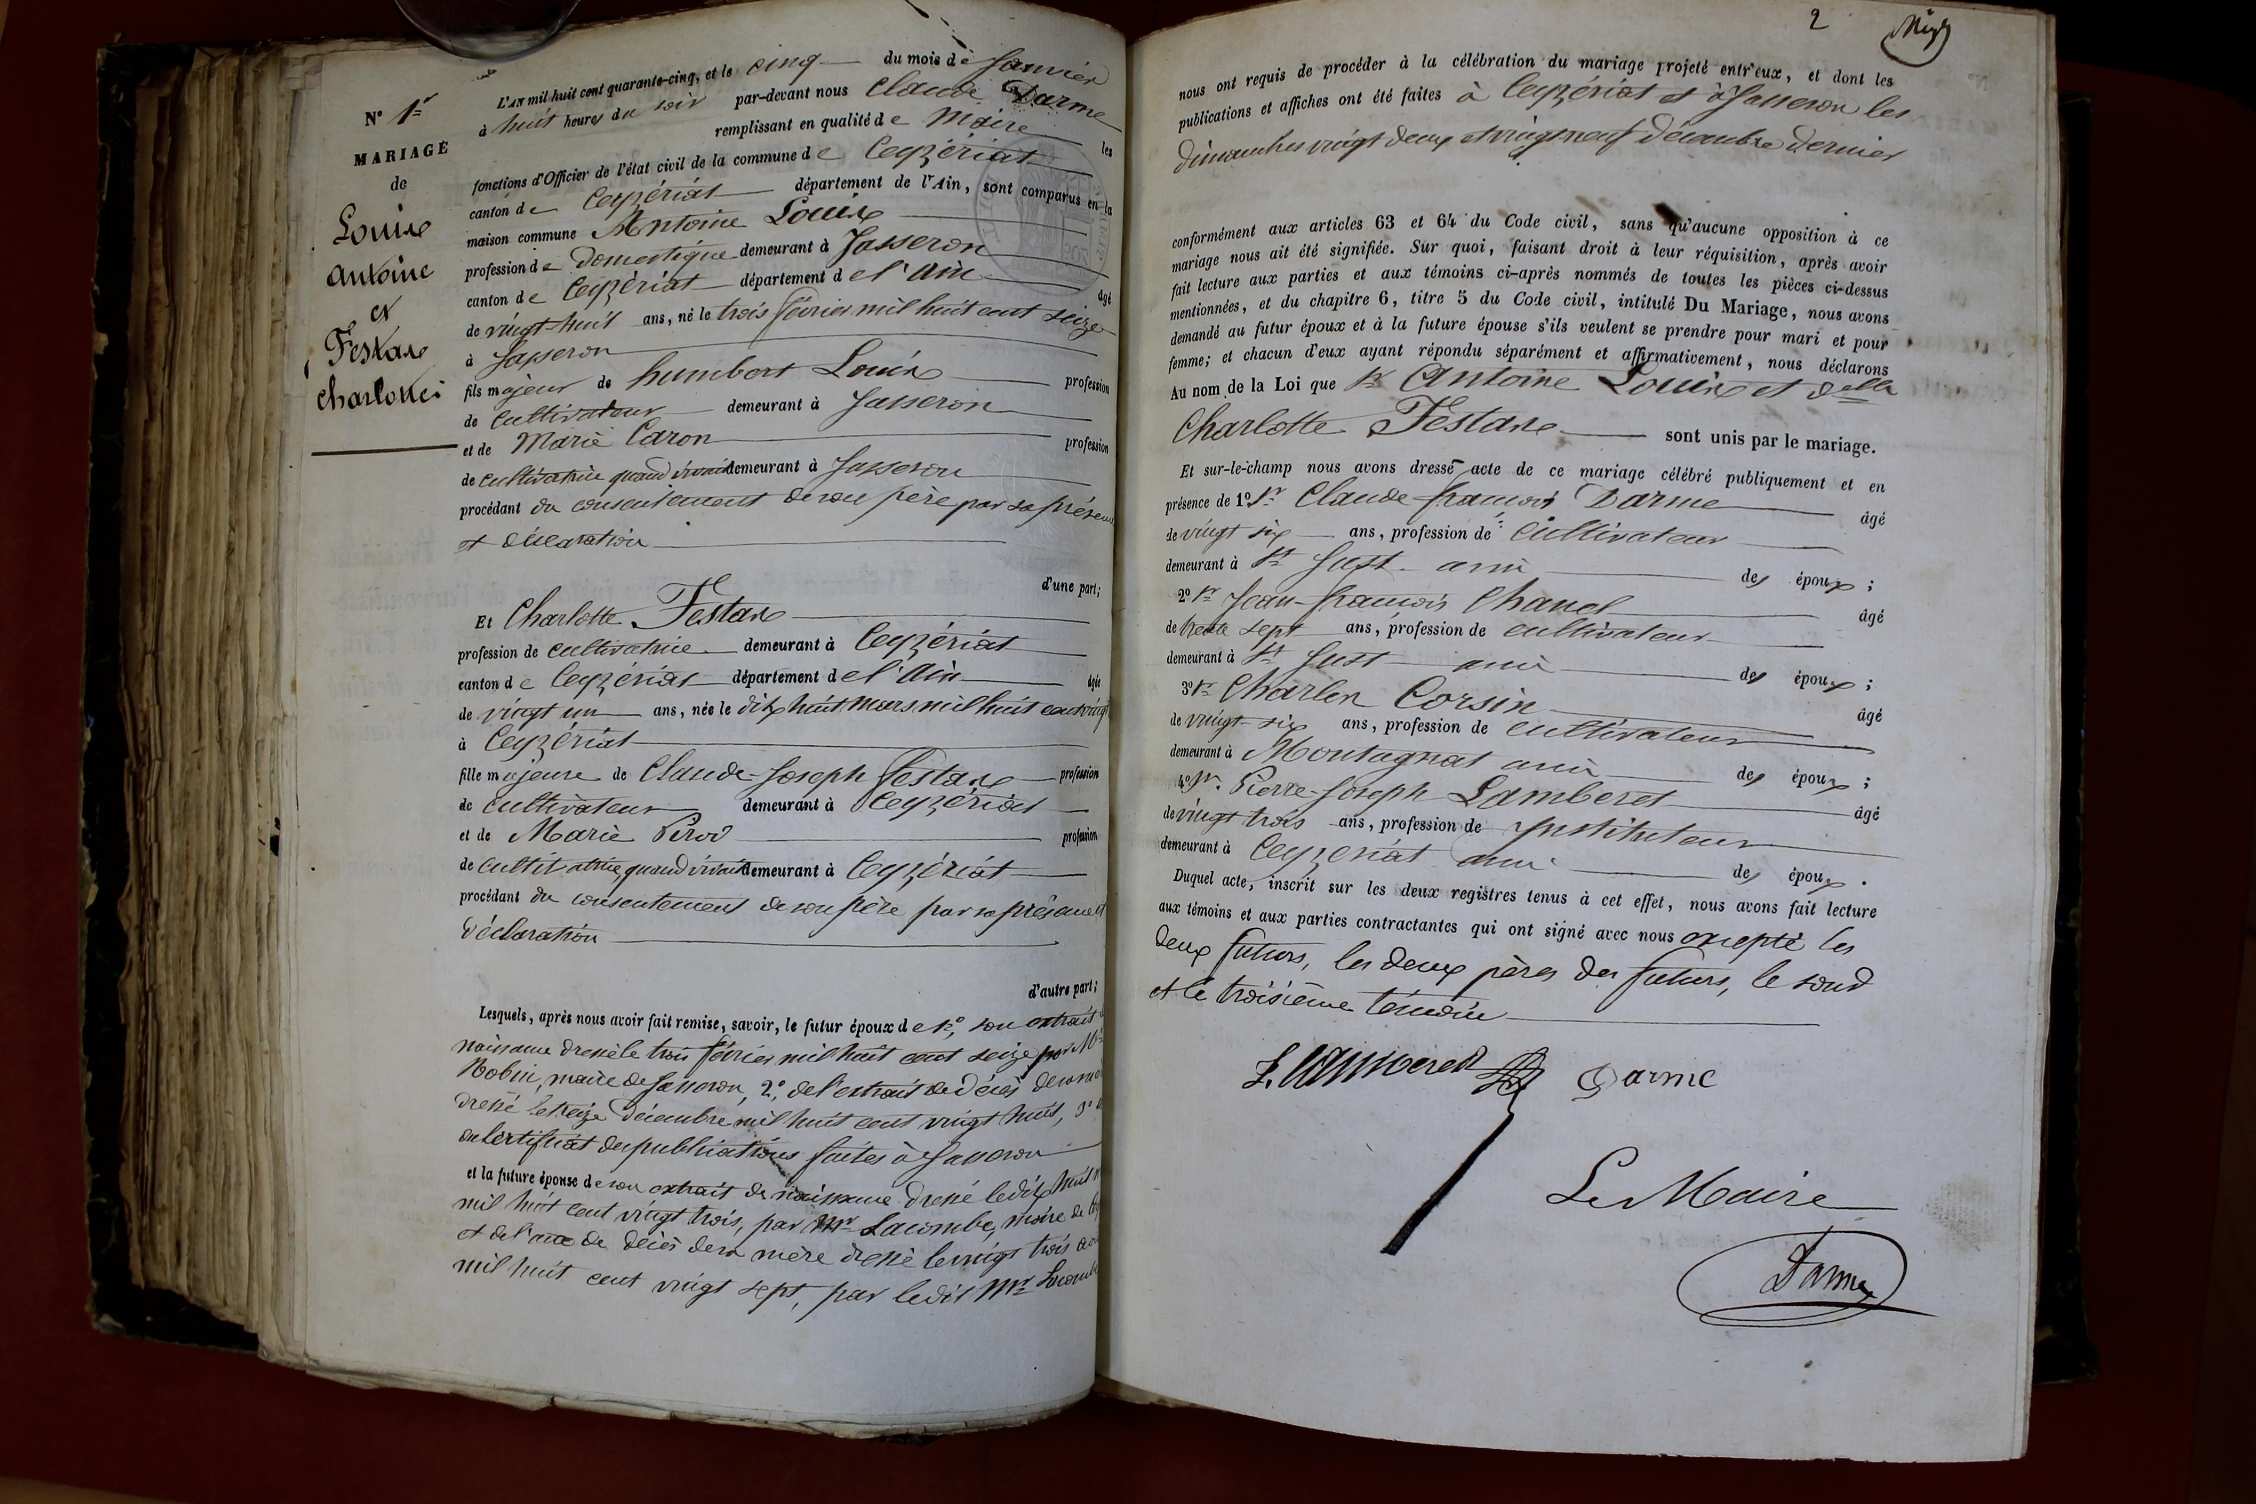 N° 1er
MARIAGE
de
Louix
Antoine
et
Festaz
Charlotte
L'AN mil huit cent quarante-cinq, et le cinq du mois de Janvier
à huit heures du soir par-devant nous Claude Darme
remplissant en qualité de Maire les
fonctions d'Officier de l'état civil de la commune de Ceyzériat
canton de Ceyzériat département de l'Ain, sont comparus en la
maison commune Antoine Louix
profession de domestique demeurant à Jasseron
canton de Ceyzériat département de l'ain âgé
de vingt-huit ans, né le trois février mil huit cent seize
à Jasseron
fils majeur de humbert Louix profession
de Cultivateur demeurant à Jasseron
et de Marie Caron profession
de cultivatrice quand vivait demeurant à Jasseron
procédant du consentement de son père par sa présence
et déclaration
d'une part;
Et Charlotte Festaz
profession de cultivatrice demeurant à Ceyzériat
canton de Ceyzériat département de l'Ain âgée
de vingt un ans, née le dix huit mars mil huit cent vingt
à Ceyzériat
fille majeure de Claude-Joseph Festaz profession
de cultivateur demeurant à Ceyzériat
et de Marie Pirod profession
de cultivatrice, quand vivait demeurant à Ceyzériat
procédant du consentement de son père par sa présence et
déclaration
d'autre part;
Lesquels, après nous avoir fait remise, savoir, le futur époux de 1°, son extrait
naissance dressé le trois février mil huit cent seize par Mr
Robin, maire de Jasseron, 2°, de l'extrait de décès de sa
dressé le seize décembre mil huit cent vingt huit, 3°
du certificat de publications faites à Jasseron
et la future épouse de son extrait de naissance dressé le dix huit
mil huit cent vingt trois, par Mr Lacombe, maire de
et de l'acte de décès de sa mère dressé le vingt trois
mil huit cent vingt sept, par ledit Mr Lacombe
2
nous ont requis de procéder à la célébration du mariage projeté entr'eux, et dont les
publications et affiches ont été faites à Ceyzériat et à Jasseron les
dimanches vingt deux et vingt neuf décembre dernier
conformément aux articles 63 et 64 du Code civil, sans qu'aucune opposition à ce
mariage nous ait été signifiée. Sur quoi, faisant droit à leur réquisition, après avoir
fait lecture aux parties et aux témoins ci-après nommés de toutes les pièces ci-dessus
mentionnées, et du chapitre 6, titre 5 du Code civil, intitulé Du Mariage, nous avons
demandé au futur époux et à la future épouse s'ils veulent se prendre pour mari et pour
femme; et chacun d'eux ayant répondu séparément et affirmativement, nous déclarons
Au nom de la Loi que Sr Antoine Louix et Delle
Charlotte Festaz sont unis par le mariage.
Et sur-le-champ nous avons dressé acte de ce mariage célébré publiquement et en
présence de 1° Sr Claude-françois Darme âgé
de vingt six ans, profession de cultivateur
demeurant à St Just ami des époux;
2° Sr Jean-françois Chanel âgé
de trente sept ans, profession de cultivateur
demeurant à St Just ami des époux;
3° Sr Charles Corsin âgé
de vingt-six ans, profession de cultivateur
demeurant à Montagnat ami des époux;
4° Sr Pierre-Joseph Lamberet âgé
de vingt trois ans, profession de Instituteur
demeurant à Ceyzériat ami des époux.
Duquel acte, inscrit sur les deux registres tenus à cet effet, nous avons fait lecture
aux témoins et aux parties contractantes qui ont signé avec nous excepté les
deux futurs, les deux pères des futurs, le second
et le troisième témoin
Lamberet Darme
Le Maire
Darme